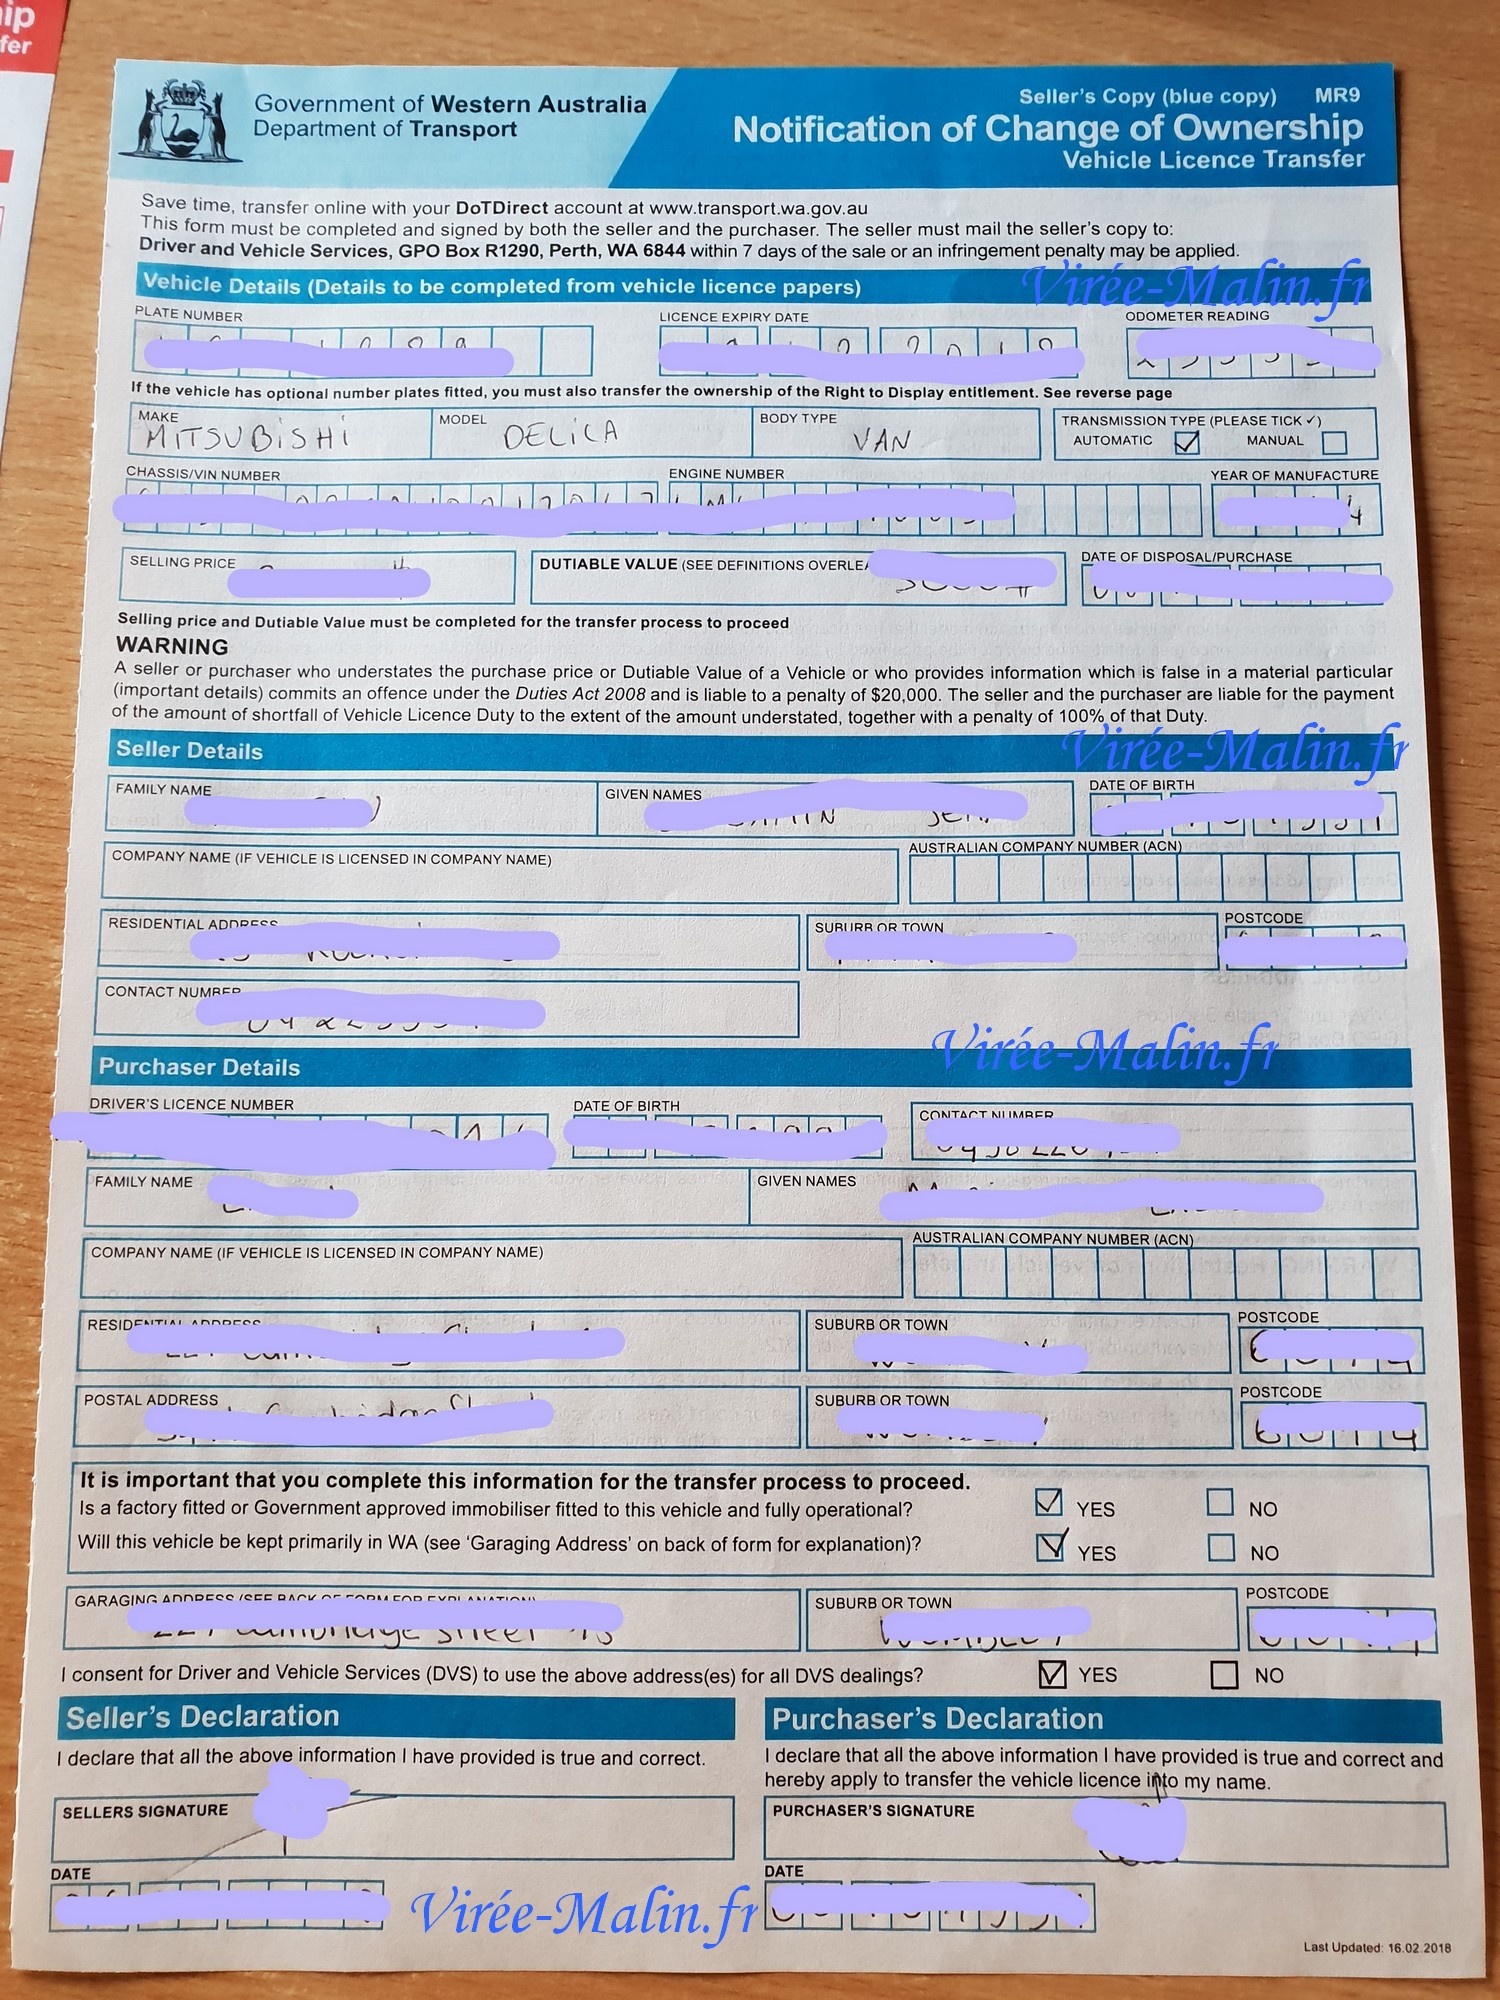 ip
fer
Government of Western Australia
Department of Transport
Seller's Copy (blue copy) MR9
Notification of Change of Ownership
Vehicle Licence Transfer
Save time, transfer online with your DoTDirect account at www.transport.wa.gov.au
This form must be completed and signed by both the seller and the purchaser. The seller must mail the seller's copy to:
Driver and Vehicle Services, GPO Box R1290, Perth, WA 6844 within 7 days of the sale or an infringement penalty may be applied.
Virée-Malin.fr
Vehicle Details (Details to be completed from vehicle licence papers)
PLATE NUMBER LICENCE EXPIRY DATE ODOMETER READING
If the vehicle has optional number plates fitted, you must also transfer the ownership of the Right to Display entitlement. See reverse page
MAKE MODEL BODY TYPE TRANSMISSION TYPE (PLEASE TICK ✓)
MITSUBISHI DELICA VAN AUTOMATIC MANUAL
CHASSIS/VIN NUMBER ENGINE NUMBER YEAR OF MANUFACTURE
SELLING PRICE DUTIABLE VALUE (SEE DEFINITIONS DATE OF DISPOSAL/PURCHASE
Selling price and Dutiable Value must be completed for the transfer process to proceed
WARNING
A seller or purchaser who understates the purchase price or Dutiable Value of a Vehicle or who provides information which is false in a material particular
(important details) commits an offence under the Duties Act 2008 and is liable to a penalty of $20,000. The seller and the purchaser are liable for the payment
of the amount of shortfall of Vehicle Licence Duty to the extent of the amount understated, together with a penalty of 100% of that Duty.
Seller Details Virée-Malin.fr
FAMILY NAME GIVEN NAMES DATE OF BIRTH
COMPANY NAME (IF VEHICLE IS LICENSED IN COMPANY NAME) AUSTRALIAN COMPANY NUMBER (ACN)
RESIDENTIAL ADDRESS SUBURB OR TOWN POSTCODE
CONTACT NUMBER
Virée-Malin.fr
Purchaser Details
DRIVER'S LICENCE NUMBER DATE OF BIRTH CONTACT NUMBER
FAMILY NAME GIVEN NAMES
COMPANY NAME (IF VEHICLE IS LICENSED IN COMPANY NAME) AUSTRALIAN COMPANY NUMBER (ACN)
RESIDENTIAL ADDRESS SUBURB OR TOWN POSTCODE
POSTAL ADDRESS SUBURB OR TOWN POSTCODE
It is important that you complete this information for the transfer process to proceed.
Is a factory fitted or Government approved immobiliser fitted to this vehicle and fully operational? YES NO
Will this vehicle be kept primarily in WA (see 'Garaging Address' on back of form for explanation)? YES NO
GARAGING ADDRESS (SEE BACK OF FORM FOR EXPLANATION) SUBURB OR TOWN POSTCODE
I consent for Driver and Vehicle Services (DVS) to use the above address(es) for all DVS dealings? YES NO
Seller's Declaration
I declare that all the above information I have provided is true and correct.
SELLERS SIGNATURE
DATE
Purchaser's Declaration
I declare that all the above information I have provided is true and correct and
hereby apply to transfer the vehicle licence into my name.
PURCHASER'S SIGNATURE
DATE
Virée-Malin.fr
Last Updated: 16.02.2018